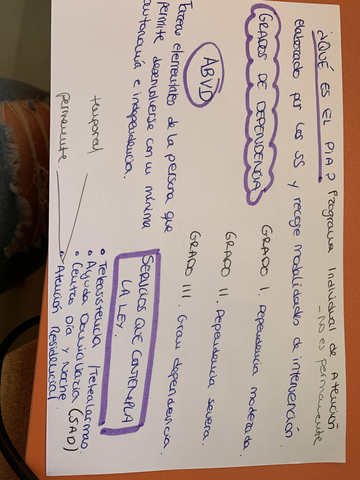 ¿QUÉ ES EL PIA? Programa Individual de Atención
- No es permanente
elaborado por los SS y recoge modalidades de intervención.
GRADOS DE DEPENDENCIA
GRADO I. Dependencia moderada.
GRADO II. Dependencia severa.
GRADO III. Gran dependencia.
ABVD
Tareas elementales de la persona que
permite desenvolverse con un mínima
autonomía e independencia.
SERVICIOS QUE CONTEMPLA
LA LEY.
• Teleasistencia / Telealarmas.
• Ayuda Domiciliaria (SAD)
• Centro Día y Noche
• Atención Residencial.
temporal
permanente.